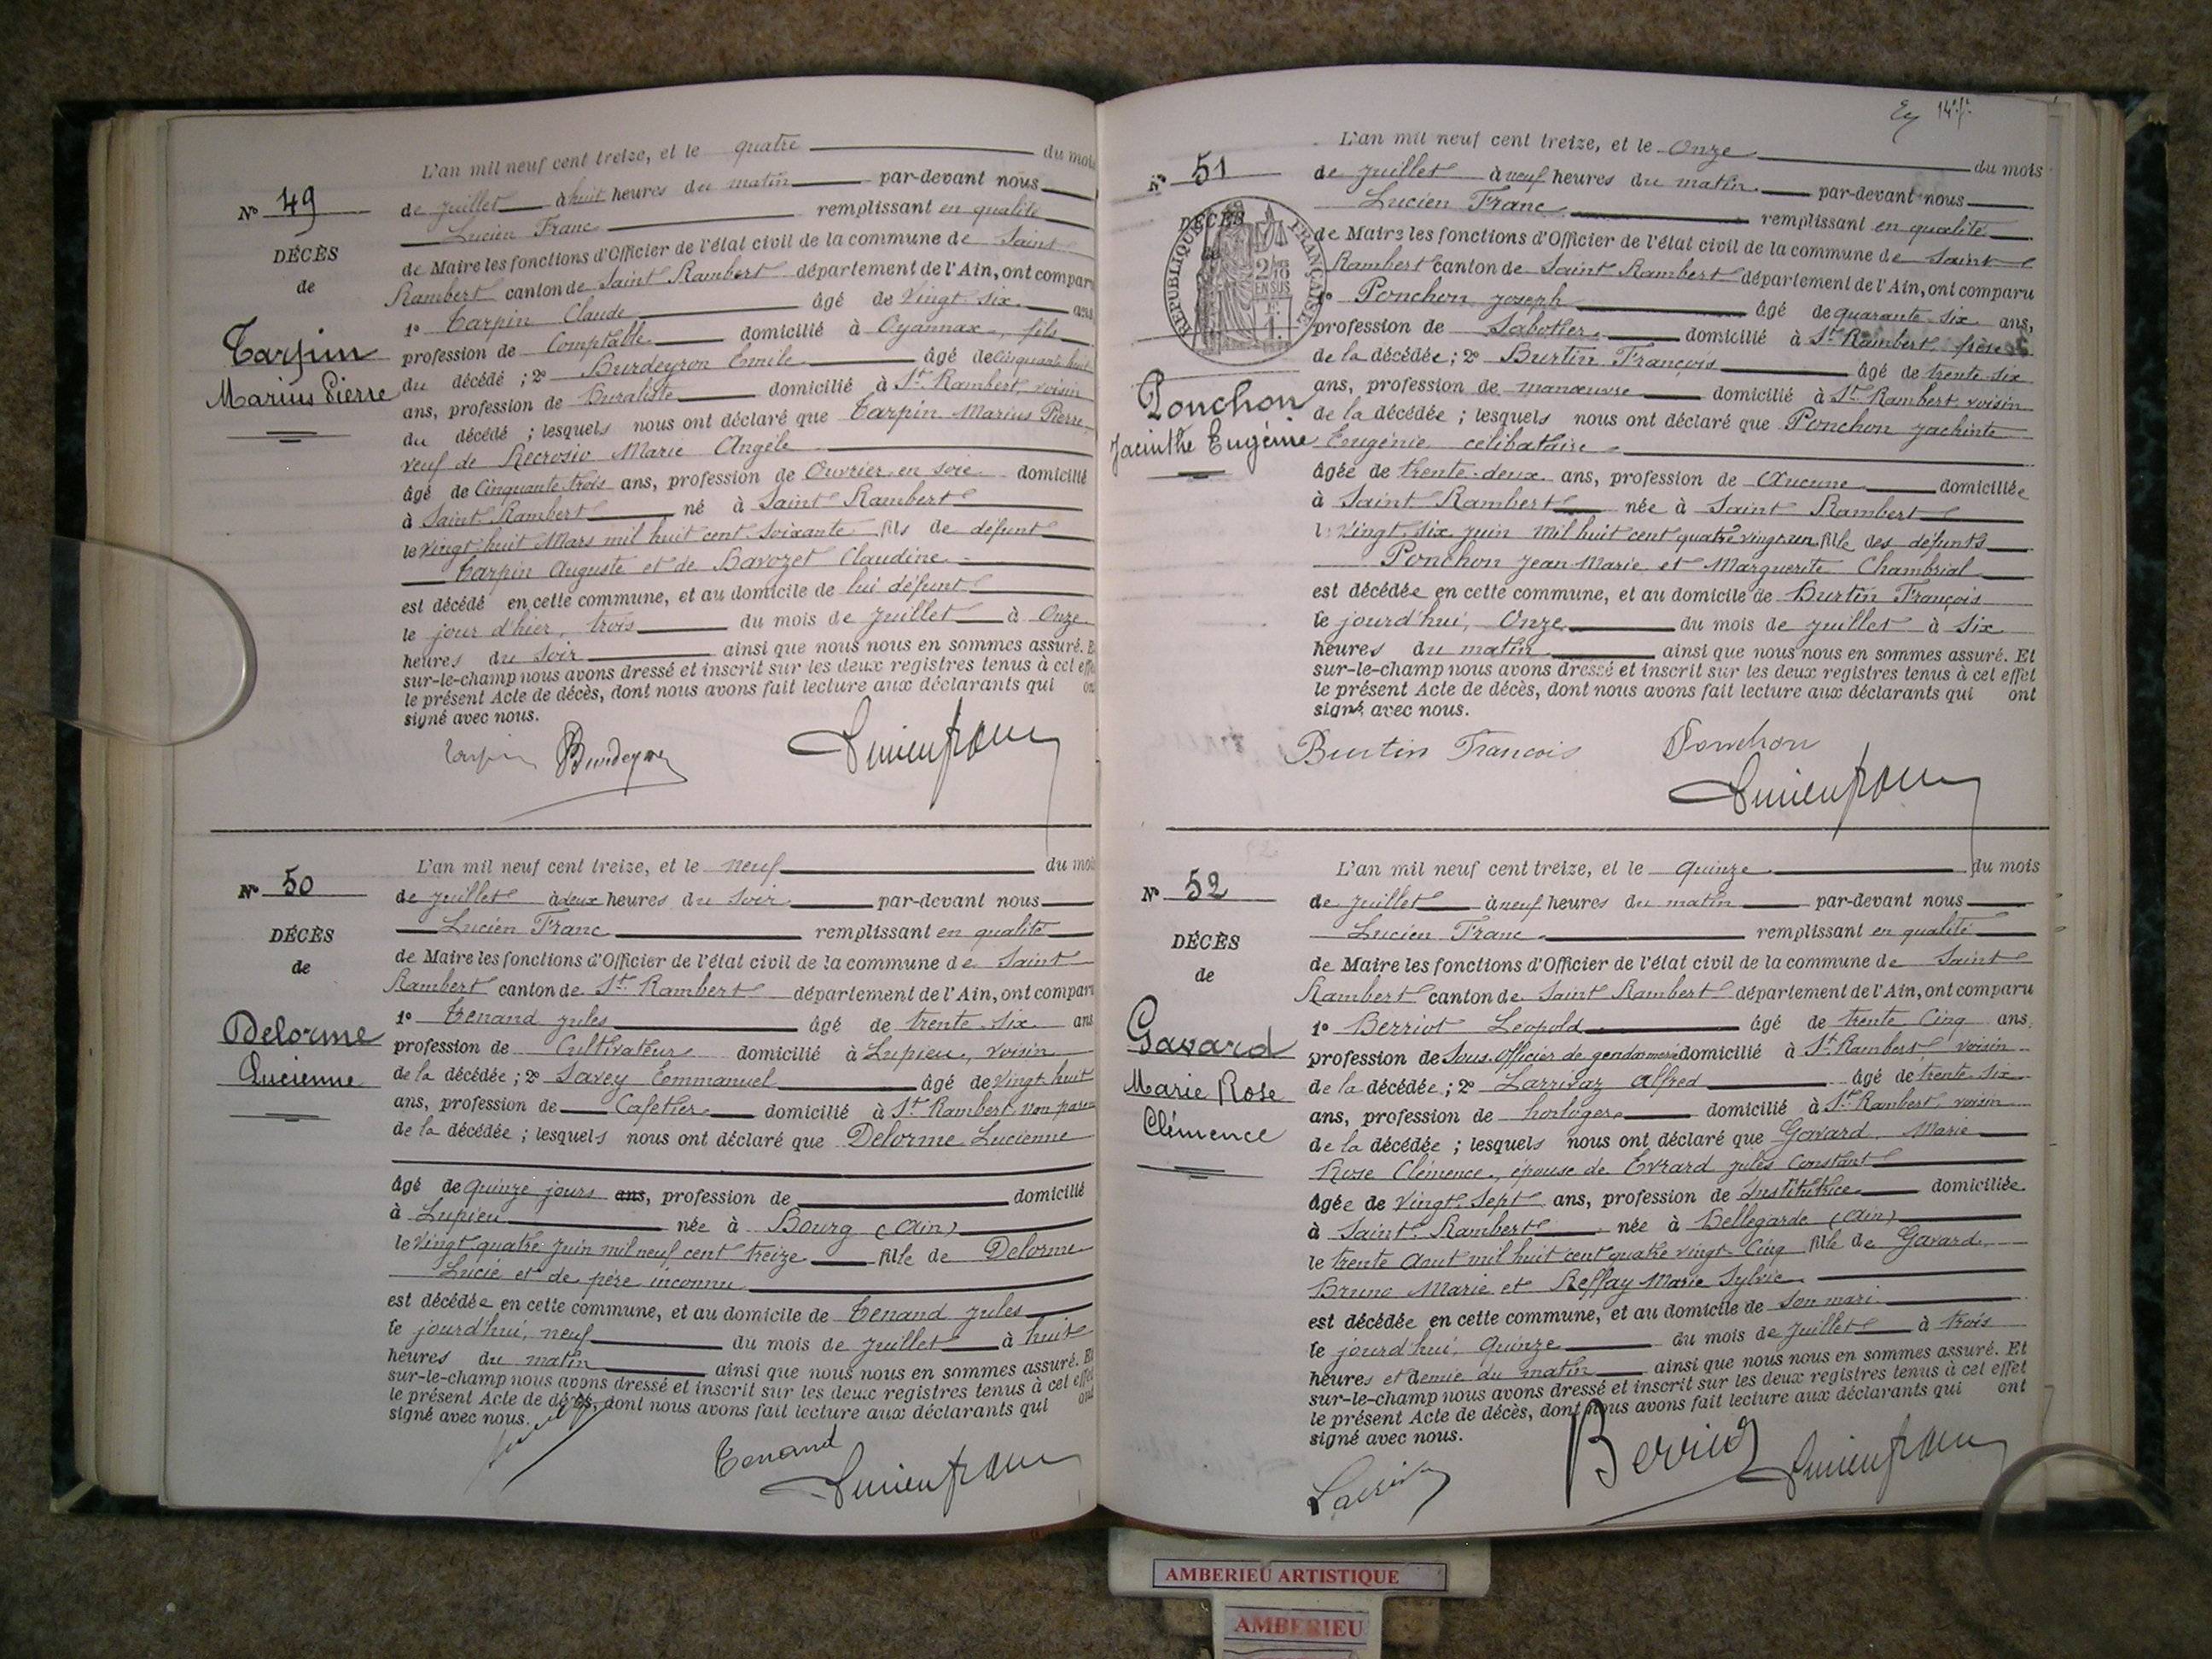 L'an mil neuf cent treize, et le quatre du mois
Nº 49
de juillet à huit heures du matin par-devant nous
Lucien Franc remplissant en qualité
DÉCÈS
de Maire les fonctions d'Officier de l'état civil de la commune de Saint
de
Rambert canton de Saint Rambert département de l'Ain, ont comparu
1º Tarpin Claude âgé de Vingt six ans
Tarpin
profession de Comptable domicilié à Oyannax, fils
Marius Pierre
du décédé ; 2º Burdeyron Emile âgé de Cinquante huit
ans, profession de Buraliste domicilié à St. Rambert, voisin
du décédé ; lesquels nous ont déclaré que Tarpin Marius Pierre,
veuf de Recrosio Marie Angèle
âgé de Cinquante trois ans, profession de Ouvrier en soie domicilié
à Saint Rambert né à Saint Rambert
le Vingt huit Mars mil huit cent soixante fils de défunt
Tarpin Auguste et de Bavozet Claudine
est décédé en cette commune, et au domicile de lui défunt
le jour d'hier, trois du mois de juillet à Onze
heures du soir ainsi que nous nous en sommes assuré. Et
sur-le-champ nous avons dressé et inscrit sur les deux registres tenus à cet effet
le présent Acte de décès, dont nous avons fait lecture aux déclarants qui ont
signé avec nous.
Tarpin Burdeyron Lucien Franc
L'an mil neuf cent treize, et le neuf du mois
Nº 50
de juillet à deux heures du soir par-devant nous
Lucien Franc remplissant en qualité
DÉCÈS
de Maire les fonctions d'Officier de l'état civil de la commune de Saint
de
Rambert canton de St. Rambert département de l'Ain, ont comparu
1º Tenand jules âgé de trente six ans
Delorme
profession de Cultivateur domicilié à Lupieu, voisin
Lucienne
de la décédée ; 2º Savey Emmanuel âgé de Vingt huit
ans, profession de Cafetier domicilié à St. Rambert, non parent
de la décédée ; lesquels nous ont déclaré que Delorme Lucienne
âgé de quinze jours ans, profession de domicilié
à Lupieu née à Bourg (Ain)
le Vingt quatre juin mil neuf cent treize fille de Delorme
Lucie et de père inconnu
est décédée en cette commune, et au domicile de Tenand jules
le jourd'hui, neuf du mois de juillet à huit
heures du matin ainsi que nous nous en sommes assuré. Et
sur-le-champ nous avons dressé et inscrit sur les deux registres tenus à cet effet
le présent Acte de décès, dont nous avons fait lecture aux déclarants qui ont
signé avec nous.
Tenand
Lucien Franc
L'an mil neuf cent treize, et le Onze du mois
Nº 51
de juillet à neuf heures du matin par-devant nous
Lucien Franc remplissant en qualité
DÉCÈS
RÉPUBLIQUE FRANÇAISE
2/10 EN SUS
de Maire les fonctions d'Officier de l'état civil de la commune de Saint
Rambert canton de Saint Rambert département de l'Ain, ont comparu
1º Ponchon joseph âgé de quarante six ans,
profession de Sabotier domicilié à St. Rambert, frère
de la décédée ; 2º Burtin François âgé de trente six
Ponchon
ans, profession de manœuvre domicilié à St. Rambert, voisin
de la décédée ; lesquels nous ont déclaré que Ponchon jachinte
Jacinthe Eugénie
Eugénie, celibataire
âgée de trente-deux ans, profession de Aucune domiciliée
à Saint Rambert née à Saint Rambert
le Vingt six juin mil huit cent quatre vingt un, fille des défunts
Ponchon jean Marie et Marguerite Chambrial
est décédée en cette commune, et au domicile de Burtin François
le jourd'hui, Onze du mois de juillet à six
heures du matin ainsi que nous nous en sommes assuré. Et
sur-le-champ nous avons dressé et inscrit sur les deux registres tenus à cet effet
le présent Acte de décès, dont nous avons fait lecture aux déclarants qui ont
signé avec nous.
Burtin Francois Ponchon
Lucien Franc
L'an mil neuf cent treize, et le quinze du mois
Nº 52
de juillet à neuf heures du matin par-devant nous
Lucien Franc remplissant en qualité
DÉCÈS
de Maire les fonctions d'Officier de l'état civil de la commune de Saint
de
Rambert canton de Saint Rambert département de l'Ain, ont comparu
1º Berriot Léopold âgé de trente Cinq ans,
Gavard
profession de Sous Officier de gendarmerie domicilié à St. Rambert voisin
Marie Rose
de la décédée ; 2º Larrivaz Alfred âgé de trente six
Clémence
ans, profession de horloger domicilié à St. Rambert, voisin
de la décédée ; lesquels nous ont déclaré que Gavard, Marie
Rose Clémence, épouse de Evrard jules Constant
âgée de Vingt Sept ans, profession de Institutrice domiciliée
à Saint Rambert née à Bellegarde (Ain)
le trente Aout mil huit cent quatre vingt Cinq fille de Gavard
Bruno Marie et Reffay Marie Sylvie
est décédée en cette commune, et au domicile de son mari
le jourd'hui, quinze du mois de juillet à trois
heures et demie du matin ainsi que nous nous en sommes assuré. Et
sur-le-champ nous avons dressé et inscrit sur les deux registres tenus à cet effet
le présent Acte de décès, dont nous avons fait lecture aux déclarants qui ont
signé avec nous.
Berriot Lucien Franc
AMBERIEU ARTISTIQUE
AMBERIEU